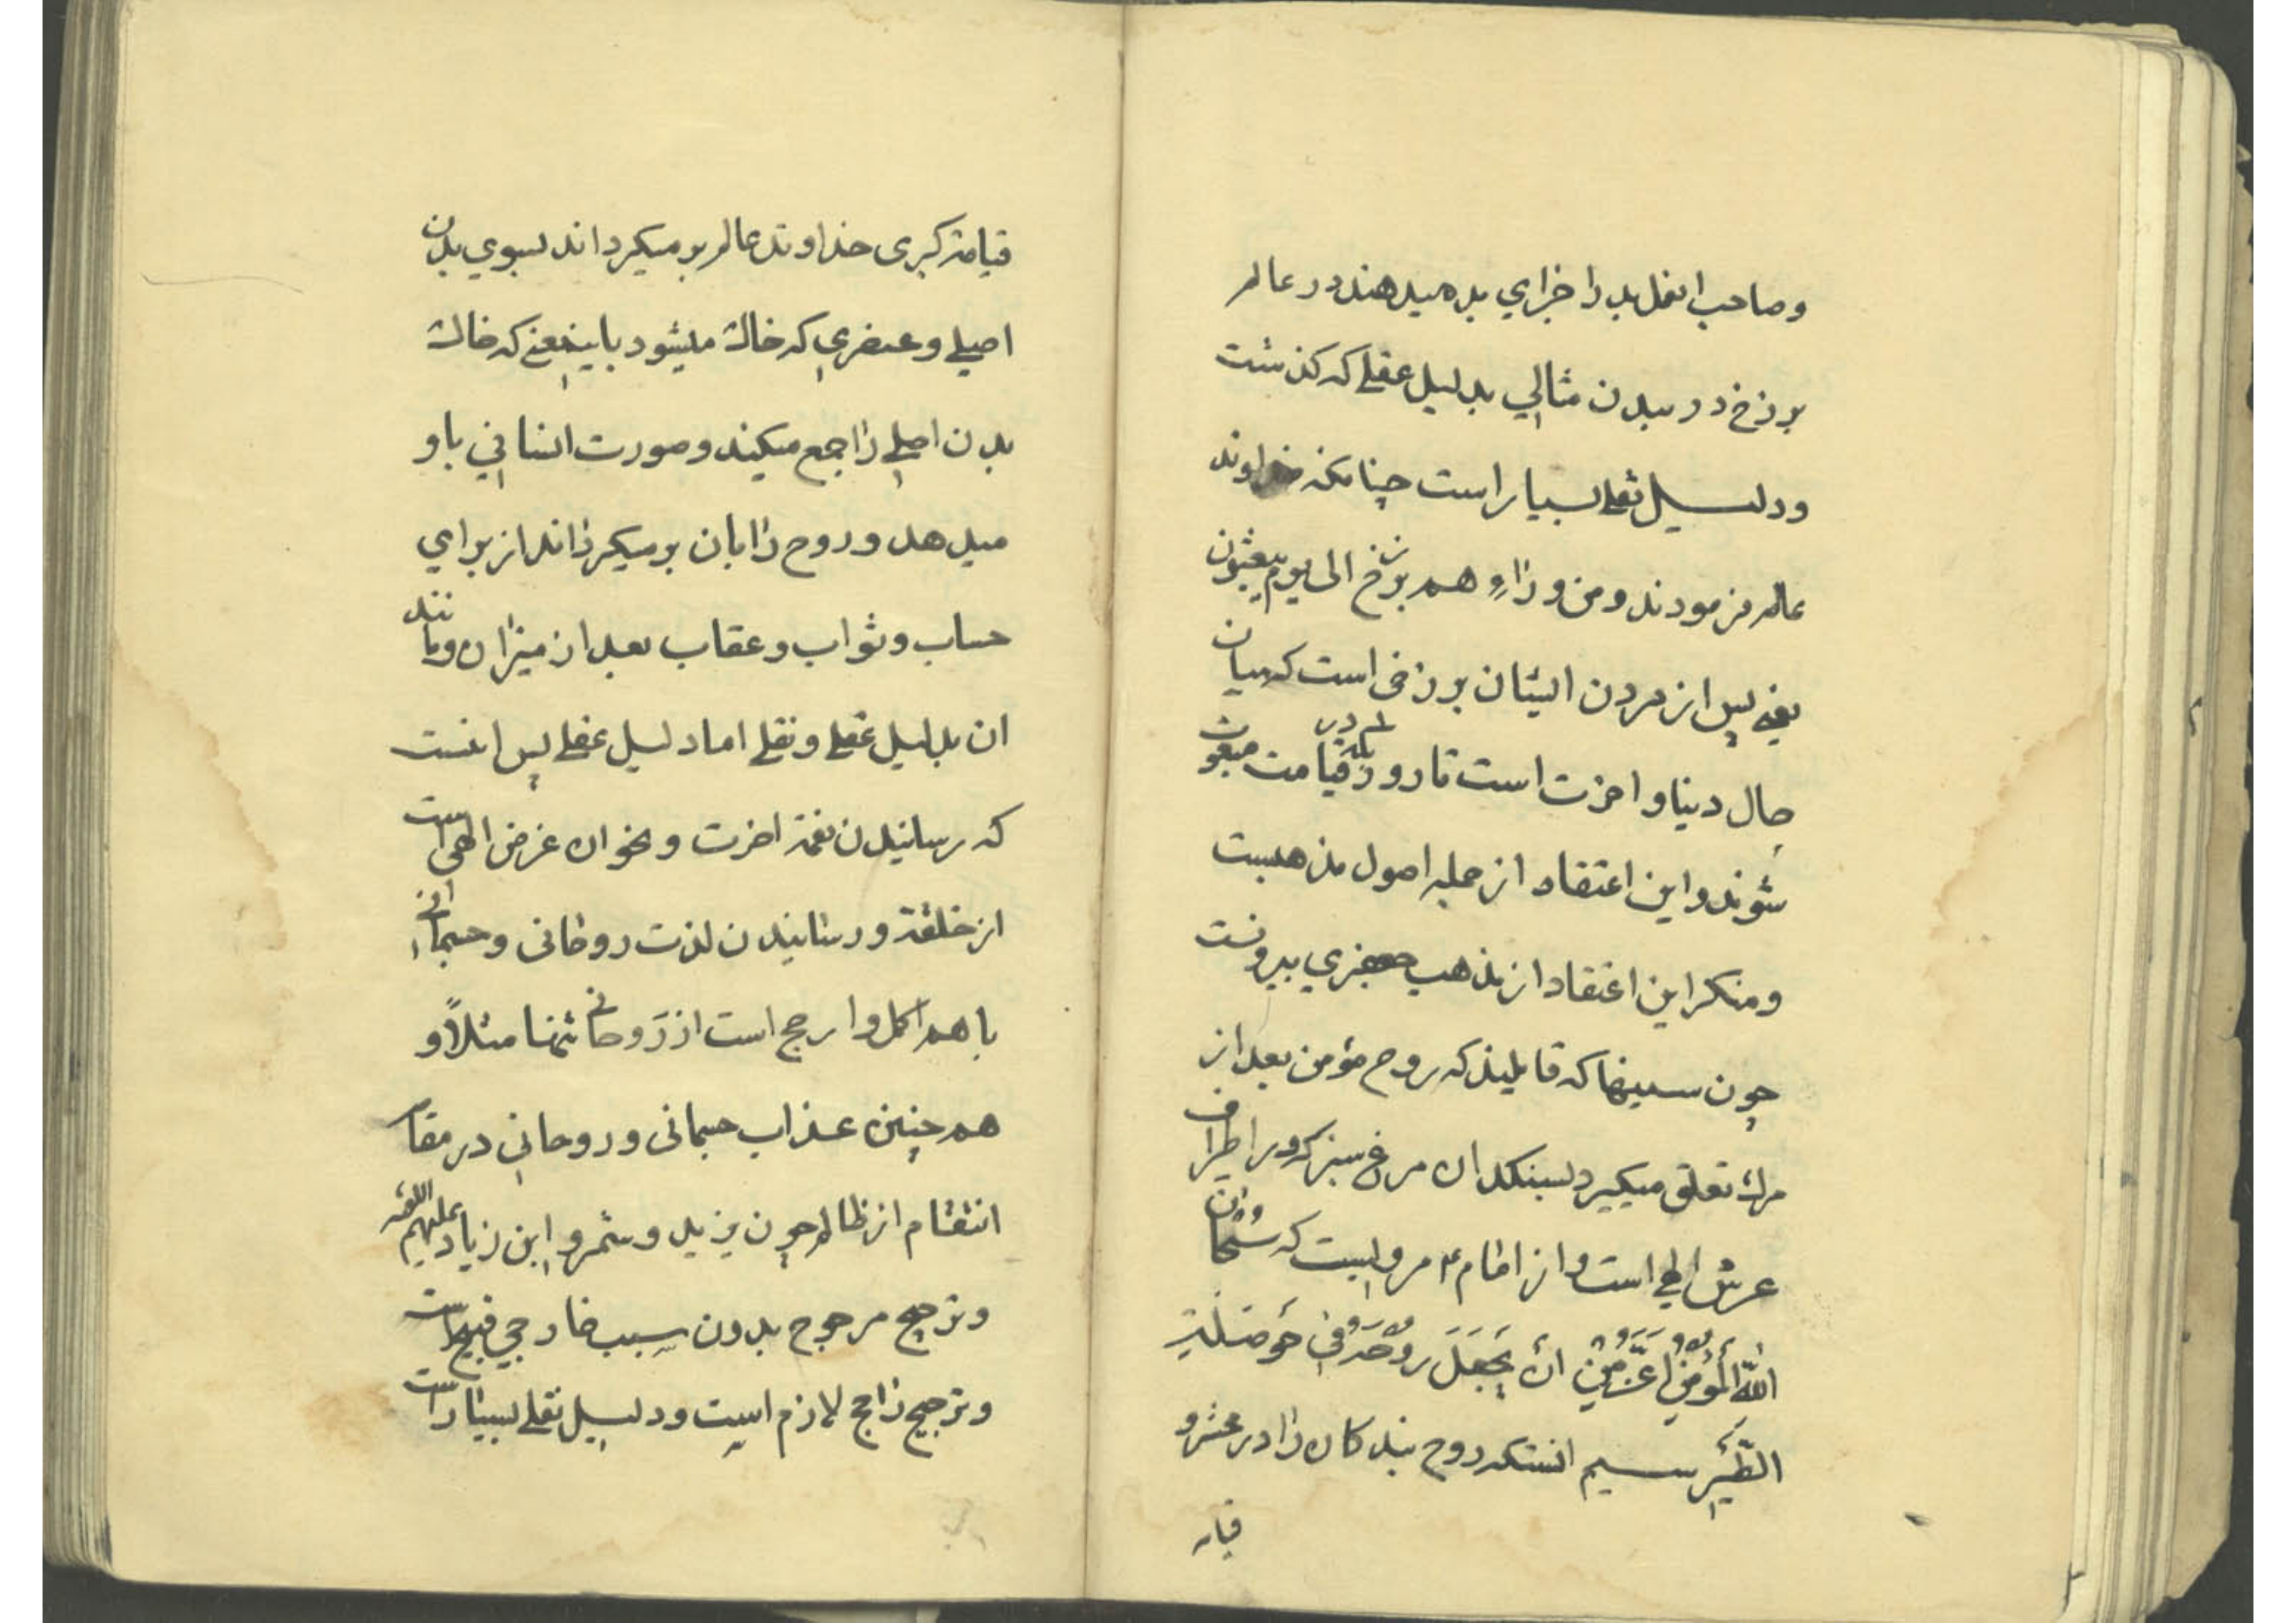 وصاحب انعمل بد را جزاي بد میدهند در عالم
برزخ در ببدن مثالي بدلیل عقلے که کذشت
ودلیل نقلے بسیار است چنانکه خداوند
عالم فرمودند ومن وراء هم برزخ الی یوم یبعثون
یعنے پس از مردن ایشان برزخی است که میان
حال دینا واخرت است تا روزیکه در قیامت مبعوث
شوند واین اعتقاد از جمله اصول مذهبست
ومنکر این اعتقاد از مذهب جعفري بیرونست
چون سنیها که قایلیند که روح مؤمن بعد از
مرك تعلق میکیرد بسنکدان مرغ سبز که در اطراف
عرش الهي است واز امام ۴ مرویست که سُبْحان
اللّٰه الْمُؤْمِنُ اَعَزُّ مِنْ اَنْ یَجْعَلَ روُحَهُ فی حَوصَلَةِ
الطَّیْرِ سیم انستکه روح بندکان را در محشر و
قیامة
قیامة کبری خداوند عالم بر میکرداند بسوي بدن
اصلے وعنصري که خاك میشود باینمعنے که خاك
بدن اصلے را جمع میکند وصورت انسانی باو
میدهد و روح را بان بر میکرداند از براي
حساب وثواب وعقاب بعد از میزان ومانند
ان بدلیل عقلے ونقلے اما دلیل عقلے پس اینست
که رسانیدن نعمة اخرت ونحو ان غرض الهی است
از خلقة ورسانیدن لذت روحانی وجسمانی
با هم اکمل وارجح است از رَوحانے تنها مثلاً و
هم چنین عذاب جسمانی وروحانی در مقام
انتقام از ظالم چون یزید وشمر و ابن زیاد علیهم اللعنه
وترجیح مرجوح بدون سبب خارجي قبیح است
وترجیح راجح لازم است ودلیل نقلے بسیار است